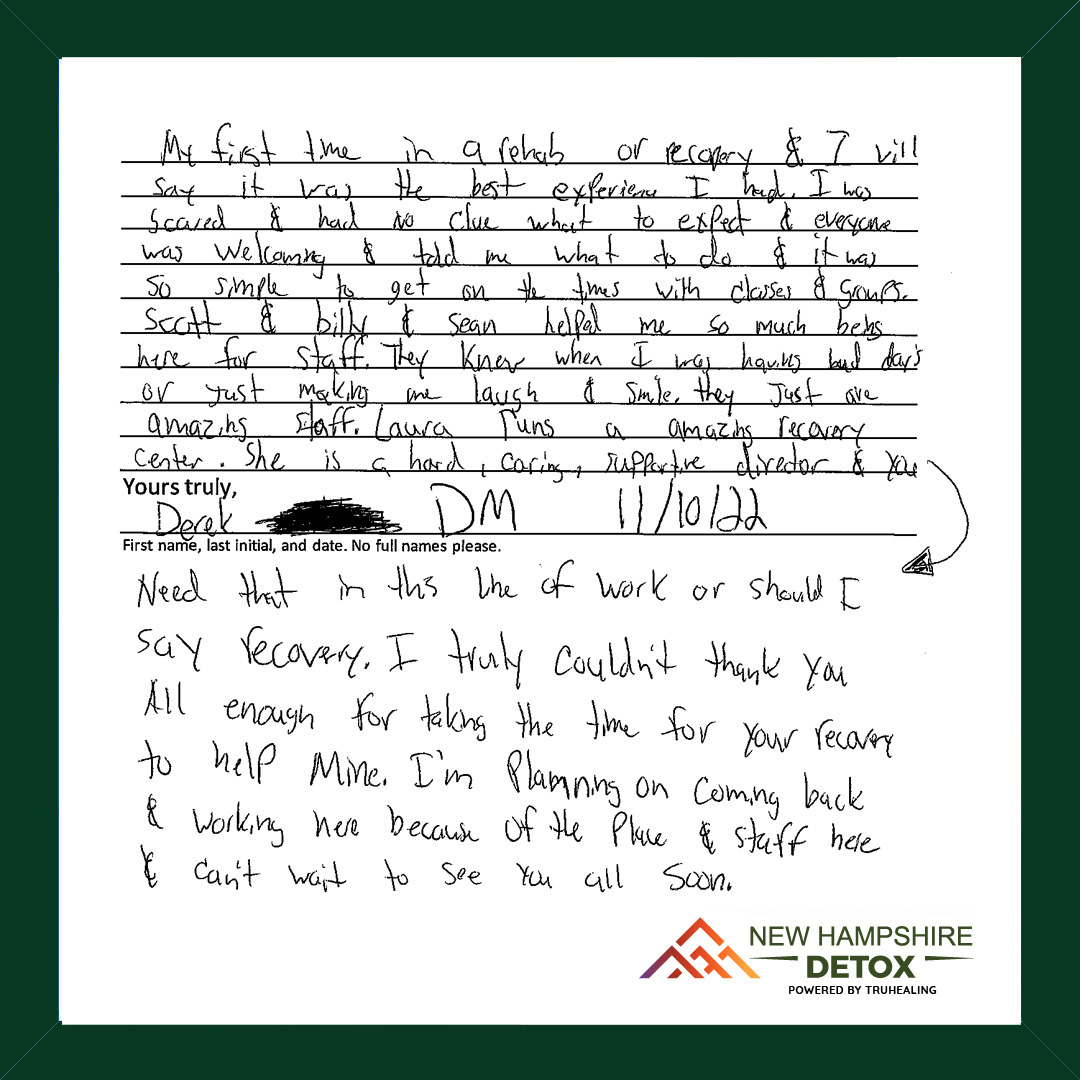 My first time in a rehab or recovery & I will
say it was the best experience I had. I was
scared & had no clue what to expect & everyone
was welcoming & told me what to do & it was
so simple to get on the times with classes & groups.
Scott & billy & sean helped me so much being
here for staff. They knew when I was having bad days
or just making me laugh & smile. they just are
amazing staff. Laura runs a amazing recovery
center. She is a hard, caring, supportive director & you
Yours truly,
Derek DM 11/10/22
First name, last initial, and date. No full names please.
Need that in this line of work or should I
say recovery. I truly couldn't thank you
All enough for taking the time for your recovery
to help Mine. I'm Planning on coming back
& working here because of the Place & staff here
& can't wait to see you all soon.
NEW HAMPSHIRE
DETOX
POWERED BY TRUHEALING